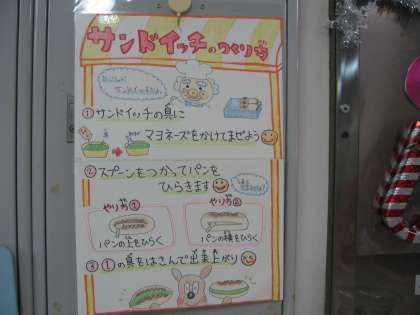 サンドイッチのつくり方
①サンドイッチの具に
マヨネーズをかけてまぜよう
②スプーンをつかってパンを
ひらきます
やり方①
パンの上をひらく
やり方②
パンの横をひらく
③①の具をはさんで出来上がり